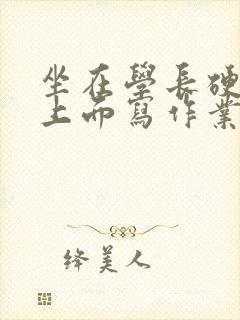 坐在學長硬
上而寫作業
绛美人